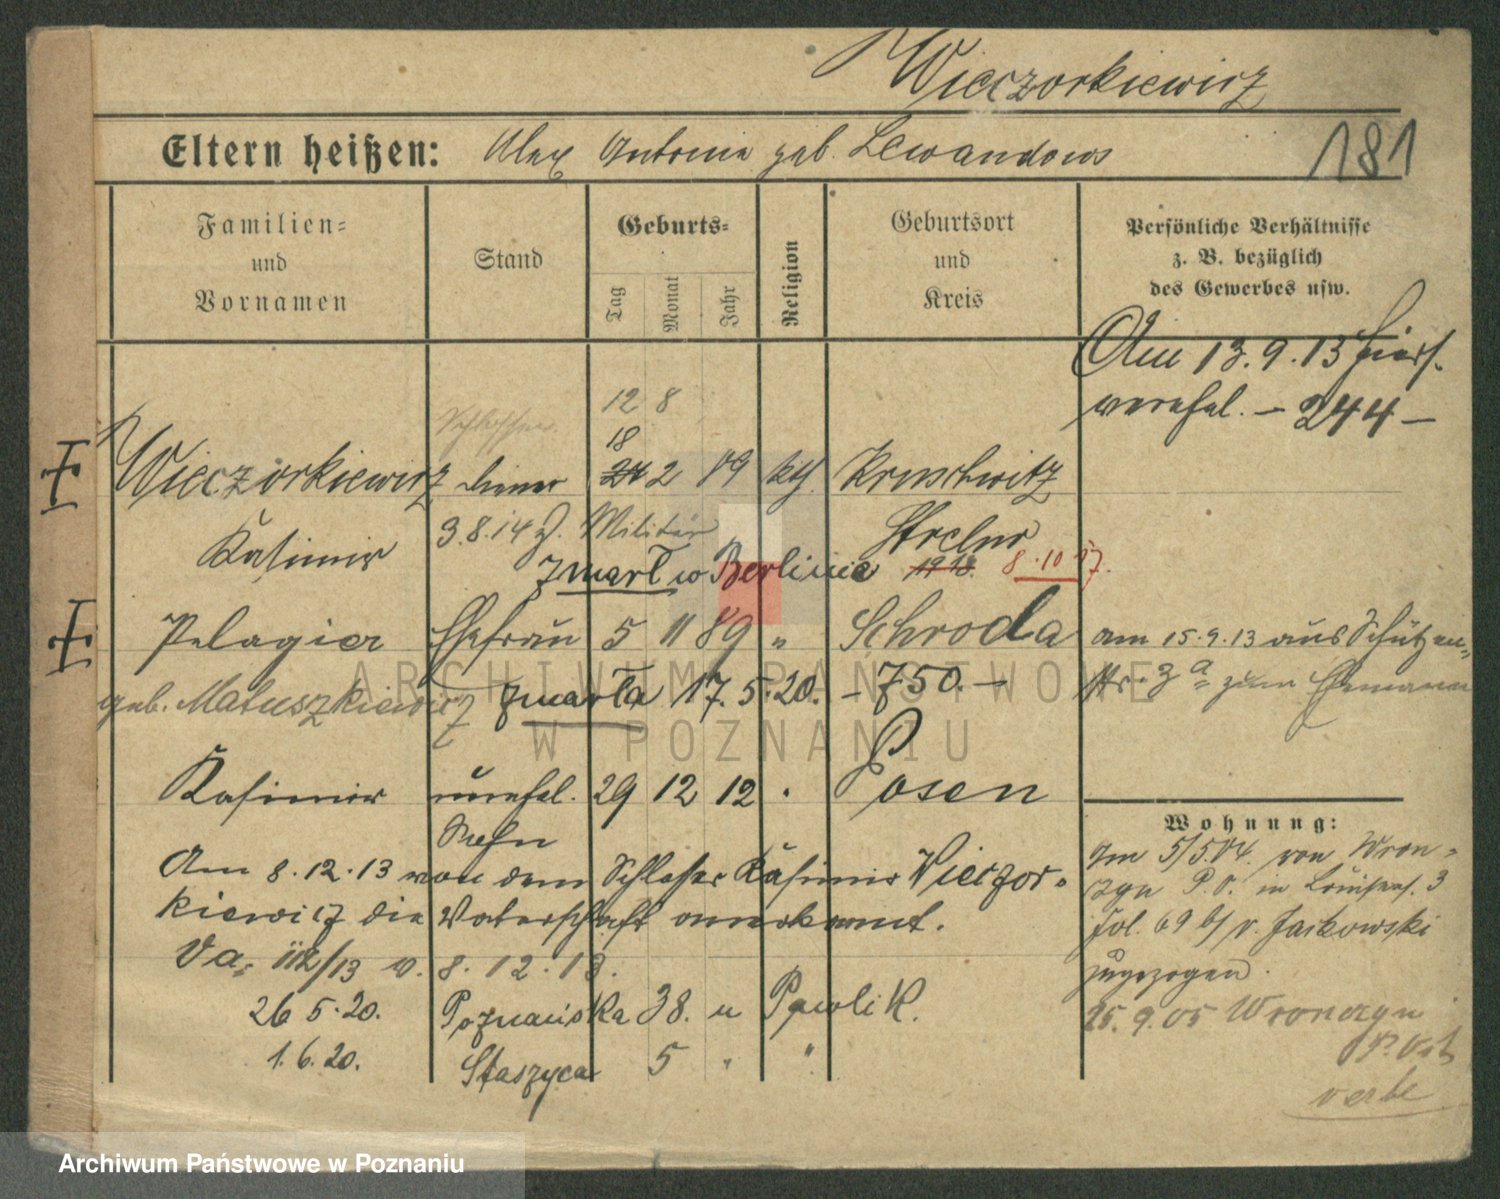 Wieczorkiewicz
181
Eltern heißen: Alex Antonie geb. Lewandows
Familien- und Vornamen
Stand
Geburts-
Tag
Monat
Jahr
Religion
Geburtsort und Kreis
Persönliche Verhältnisse
z. B. bezüglich
des Gewerbes usw.
Am 13.9.13 hier
verehel. - 244 -
12 8
Schlosser
18
Wieczorkiewicz 24 2 89 kth. Kruschwitz
Kasimir 3.8.14 z. Militär Strelno
zmarł w Berlinie 1918. 8.10.17.
Pelagia Ehefrau 5 11 89 " Schroda
am 15.9.13 aus Schützen-
str. 3a zum Ehemann
geb. Matuszkiewicz zmarła 17.5.20. - 750. -
Kasimir unehel. 29 12 12 . Posen
Sohn
Am 8.12.13 von dem Schlosser Kasimir Wieczor-
kiewicz die Vaterschaft anerkannt.
Va. 112/13 v. 8.12.13.
26 5.20. Poznańska 38. u Pawlik.
1.6.20. Staszyca 5 " "
Wohnung:
Im 5/5.04. von Wron-
czyn P.O. in Louisenst. 3
Fol. 69 b/ v. Jaskowski
zugezogen.
25.9.05 Wronczyn
P. Ost
ARCHIWUM PAŃSTWOWE
W POZNANIU
Archiwum Państwowe w Poznaniu